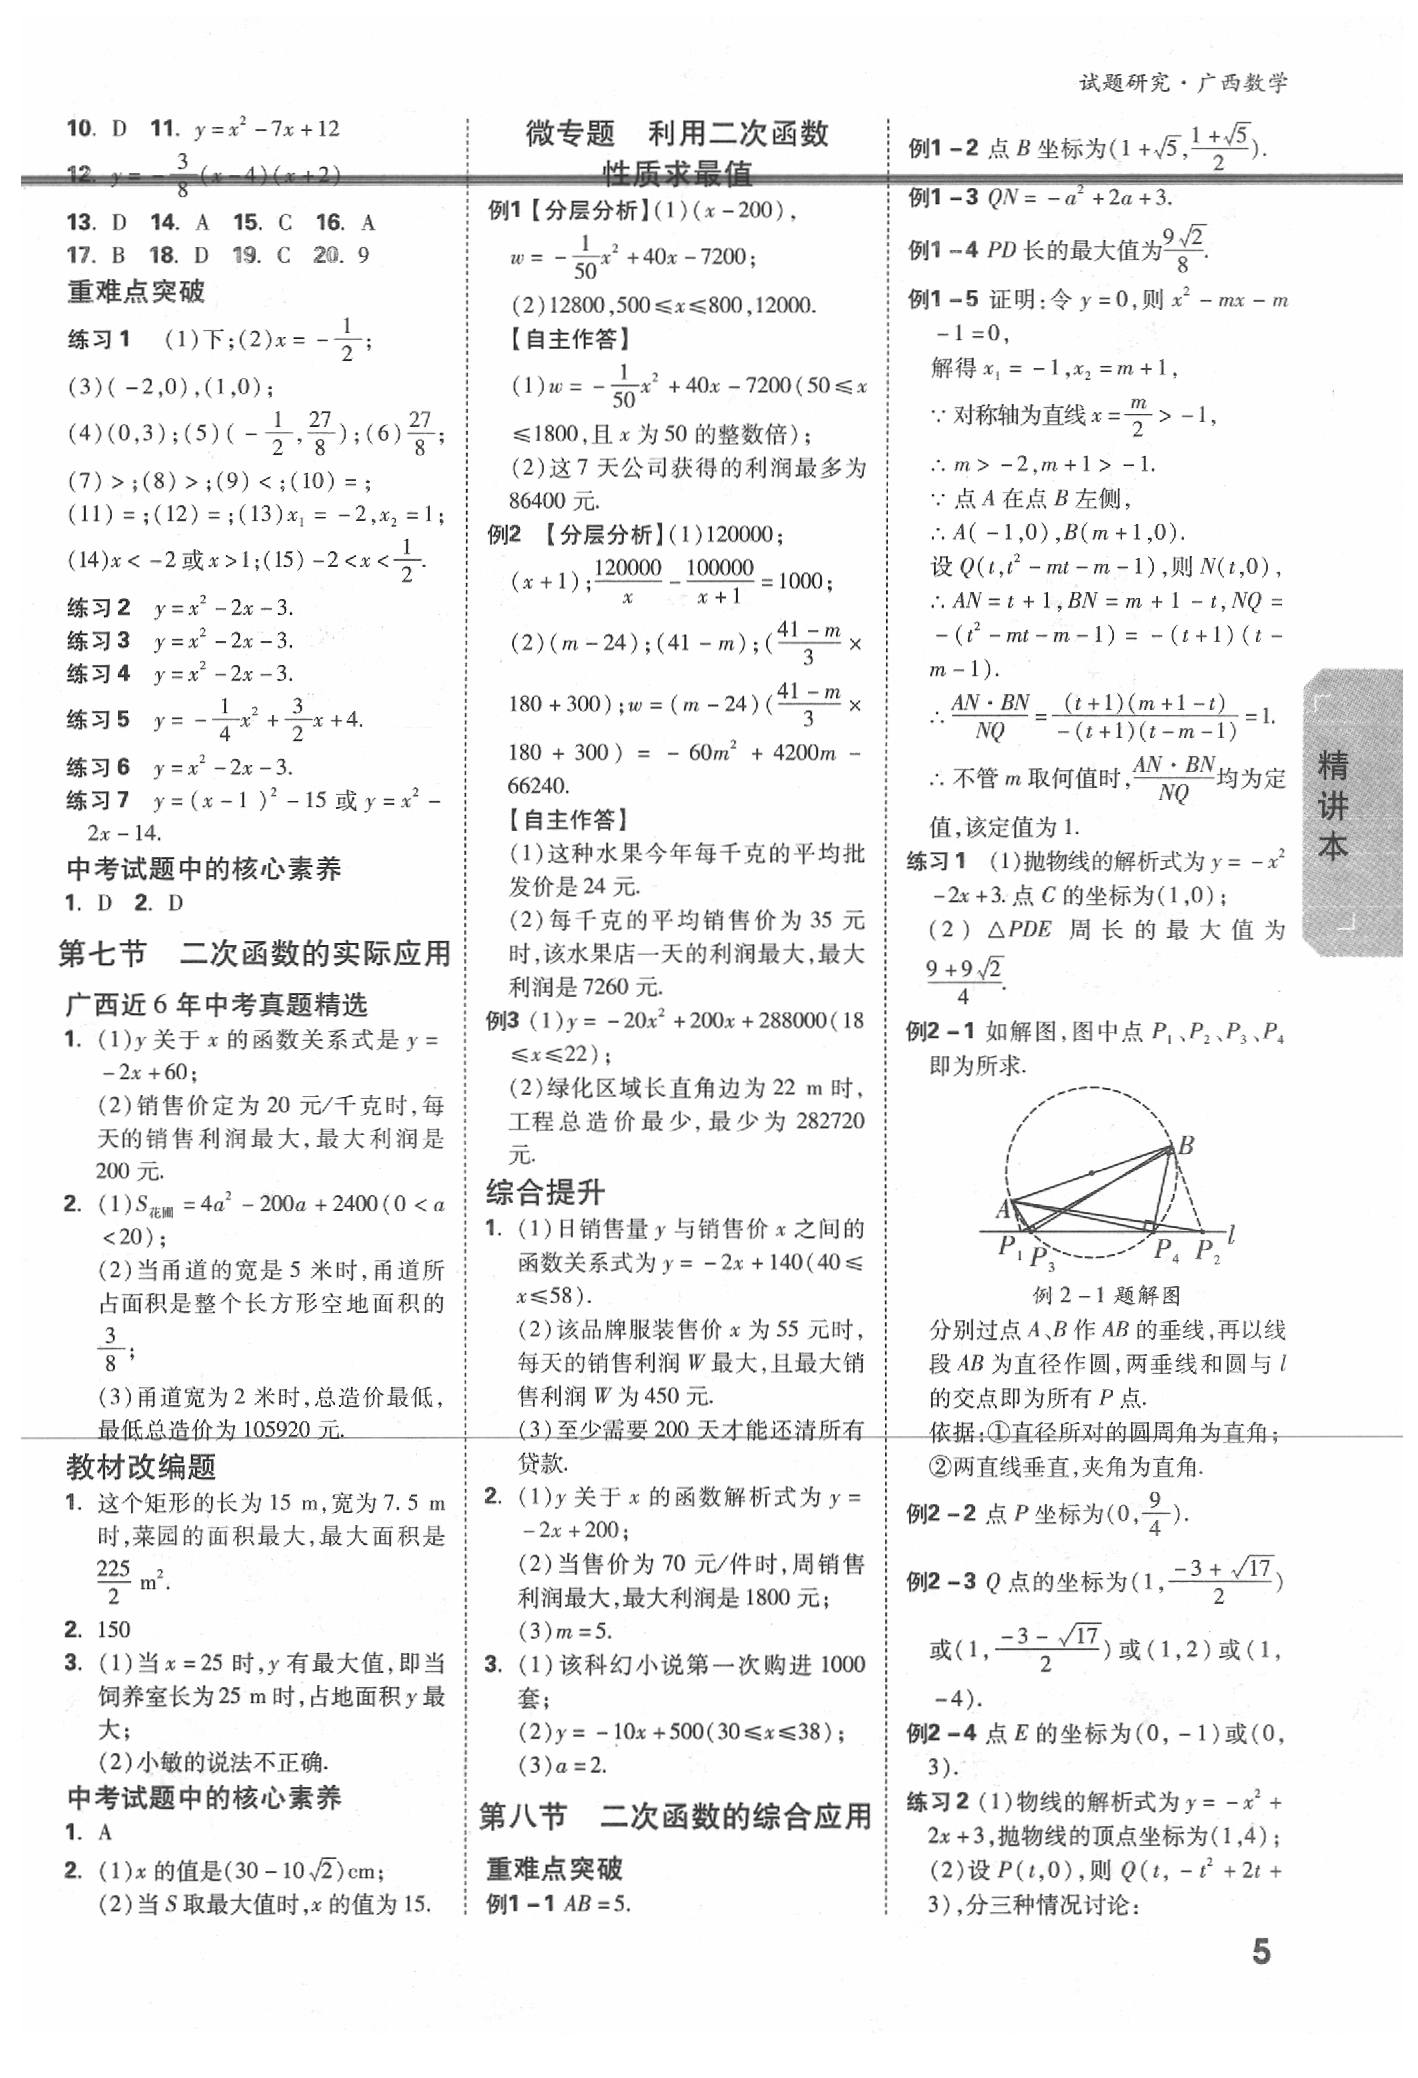 试题研究·广西数学
10. D 11. y=x²-7x+12
12. y=-3/8(x-4)(x+2)
13. D 14. A 15. C 16. A
17. B 18. D 19. C 20. 9
重难点突破
练习1 (1)下;(2)x=-1/2;
(3)(-2,0),(1,0);
(4)(0,3);(5)(-1/2,27/8);(6)27/8;
(7)>;(8)>;(9)<;(10)=;
(11)=;(12)=;(13)x₁=-2,x₂=1;
(14)x<-2或x>1;(15)-2<x<1/2.
练习2 y=x²-2x-3.
练习3 y=x²-2x-3.
练习4 y=x²-2x-3.
练习5 y=-1/4x²+3/2x+4.
练习6 y=x²-2x-3.
练习7 y=(x-1)²-15或y=x²-
2x-14.
中考试题中的核心素养
1. D 2. D
第七节 二次函数的实际应用
广西近6年中考真题精选
1. (1)y关于x的函数关系式是y=
-2x+60;
(2)销售价定为20元/千克时,每
天的销售利润最大,最大利润是
200元.
2. (1)S花圃=4a²-200a+2400(0<a
<20);
(2)当甬道的宽是5米时,甬道所
占面积是整个长方形空地面积的
3/8;
(3)甬道宽为2米时,总造价最低,
最低总造价为105920元.
教材改编题
1. 这个矩形的长为15 m,宽为7.5 m
时,菜园的面积最大,最大面积是
225/2 m².
2. 150
3. (1)当x=25时,y有最大值,即当
饲养室长为25 m时,占地面积y最
大;
(2)小敏的说法不正确.
中考试题中的核心素养
1. A
2. (1)x的值是(30-10√2)cm;
(2)当S取最大值时,x的值为15.
微专题 利用二次函数
性质求最值
例1【分层分析】(1)(x-200),
w=-1/50x²+40x-7200;
(2)12800,500≤x≤800,12000.
【自主作答】
(1)w=-1/50x²+40x-7200(50≤x
≤1800,且x为50的整数倍);
(2)这7天公司获得的利润最多为
86400元.
例2 【分层分析】(1)120000;
(x+1);120000/x-100000/(x+1)=1000;
(2)(m-24);(41-m);((41-m)/3×
180+300);w=(m-24)((41-m)/3×
180+300)=-60m²+4200m-
66240.
【自主作答】
(1)这种水果今年每千克的平均批
发价是24元.
(2)每千克的平均销售价为35元
时,该水果店一天的利润最大,最大
利润是7260元.
例3 (1)y=-20x²+200x+288000(18
≤x≤22);
(2)绿化区域长直角边为22 m时,
工程总造价最少,最少为282720
元.
综合提升
1. (1)日销售量y与销售价x之间的
函数关系式为y=-2x+140(40≤
x≤58).
(2)该品牌服装售价x为55元时,
每天的销售利润W最大,且最大销
售利润W为450元.
(3)至少需要200天才能还清所有
贷款.
2. (1)y关于x的函数解析式为y=
-2x+200;
(2)当售价为70元/件时,周销售
利润最大,最大利润是1800元;
(3)m=5.
3. (1)该科幻小说第一次购进1000
套;
(2)y=-10x+500(30≤x≤38);
(3)a=2.
第八节 二次函数的综合应用
重难点突破
例1-1 AB=5.
例1-2 点B坐标为(1+√5,(1+√5)/2).
例1-3 QN=-a²+2a+3.
例1-4 PD长的最大值为9√2/8.
例1-5 证明:令y=0,则x²-mx-m
-1=0,
解得x₁=-1,x₂=m+1,
∵对称轴为直线x=m/2>-1,
∴m>-2,m+1>-1.
∵点A在点B左侧,
∴A(-1,0),B(m+1,0).
设Q(t,t²-mt-m-1),则N(t,0),
∴AN=t+1,BN=m+1-t,NQ=
-(t²-mt-m-1)=-(t+1)(t-
m-1).
∴AN·BN/NQ=(t+1)(m+1-t)/-(t+1)(t-m-1)=1.
∴不管m取何值时,AN·BN/NQ均为定
值,该定值为1.
练习1 (1)抛物线的解析式为y=-x²
-2x+3.点C的坐标为(1,0);
(2)△PDE周长的最大值为
(9+9√2)/4.
例2-1 如解图,图中点P₁、P₂、P₃、P₄
即为所求.
B
A
l
P₁ P₃ P₄ P₂
例2-1题解图
分别过点A、B作AB的垂线,再以线
段AB为直径作圆,两垂线和圆与l
的交点即为所有P点.
依据:①直径所对的圆周角为直角;
②两直线垂直,夹角为直角.
例2-2 点P坐标为(0,9/4).
例2-3 Q点的坐标为(1,(-3+√17)/2)
或(1,(-3-√17)/2)或(1,2)或(1,
-4).
例2-4 点E的坐标为(0,-1)或(0,
3).
练习2 (1)物线的解析式为y=-x²+
2x+3,抛物线的顶点坐标为(1,4);
(2)设P(t,0),则Q(t,-t²+2t+
3),分三种情况讨论:
精讲本
5